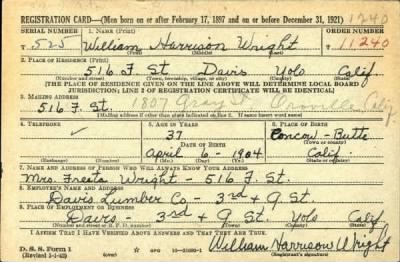 REGISTRATION CARD—(Men born on or after February 17, 1897 and on or before December 31, 1921) 1240
SERIAL NUMBER 1. NAME (Print) ORDER NUMBER
525 William Harrison Wright 11240
(First) (Middle) (Last)
2. PLACE OF RESIDENCE (Print)
516 F St. Davis Yolo Calif.
(Number and street) (Town, township, village, or city) (County) (State)
[THE PLACE OF RESIDENCE GIVEN ON THE LINE ABOVE WILL DETERMINE LOCAL BOARD
JURISDICTION; LINE 2 OF REGISTRATION CERTIFICATE WILL BE IDENTICAL]
3. MAILING ADDRESS
516 F. St. 1807 Gray St Oroville Calif
[Mailing address if other than place indicated on line 2. If same insert word same]
4. TELEPHONE 5. AGE IN YEARS 6. PLACE OF BIRTH
37 Concow - Butte
DATE OF BIRTH (Town or county)
April 6 - 1904 Calif.
(Mo.) (Day) (Yr.) (State or country)
7. NAME AND ADDRESS OF PERSON WHO WILL ALWAYS KNOW YOUR ADDRESS
Mrs. Freeta Wright - 516 F. St.
8. EMPLOYER'S NAME AND ADDRESS
Davis Lumber Co - 3rd & G St.
9. PLACE OF EMPLOYMENT OR BUSINESS
Davis - 3rd & G St. Yolo Calif.
(Number and street or R. F. D. number) (Town) (County) (State)
I AFFIRM THAT I HAVE VERIFIED ABOVE ANSWERS AND THAT THEY ARE TRUE.
D. S. S. Form 1
(Revised 1-1-42) GPO William Harrison Wright
(Registrant's signature)